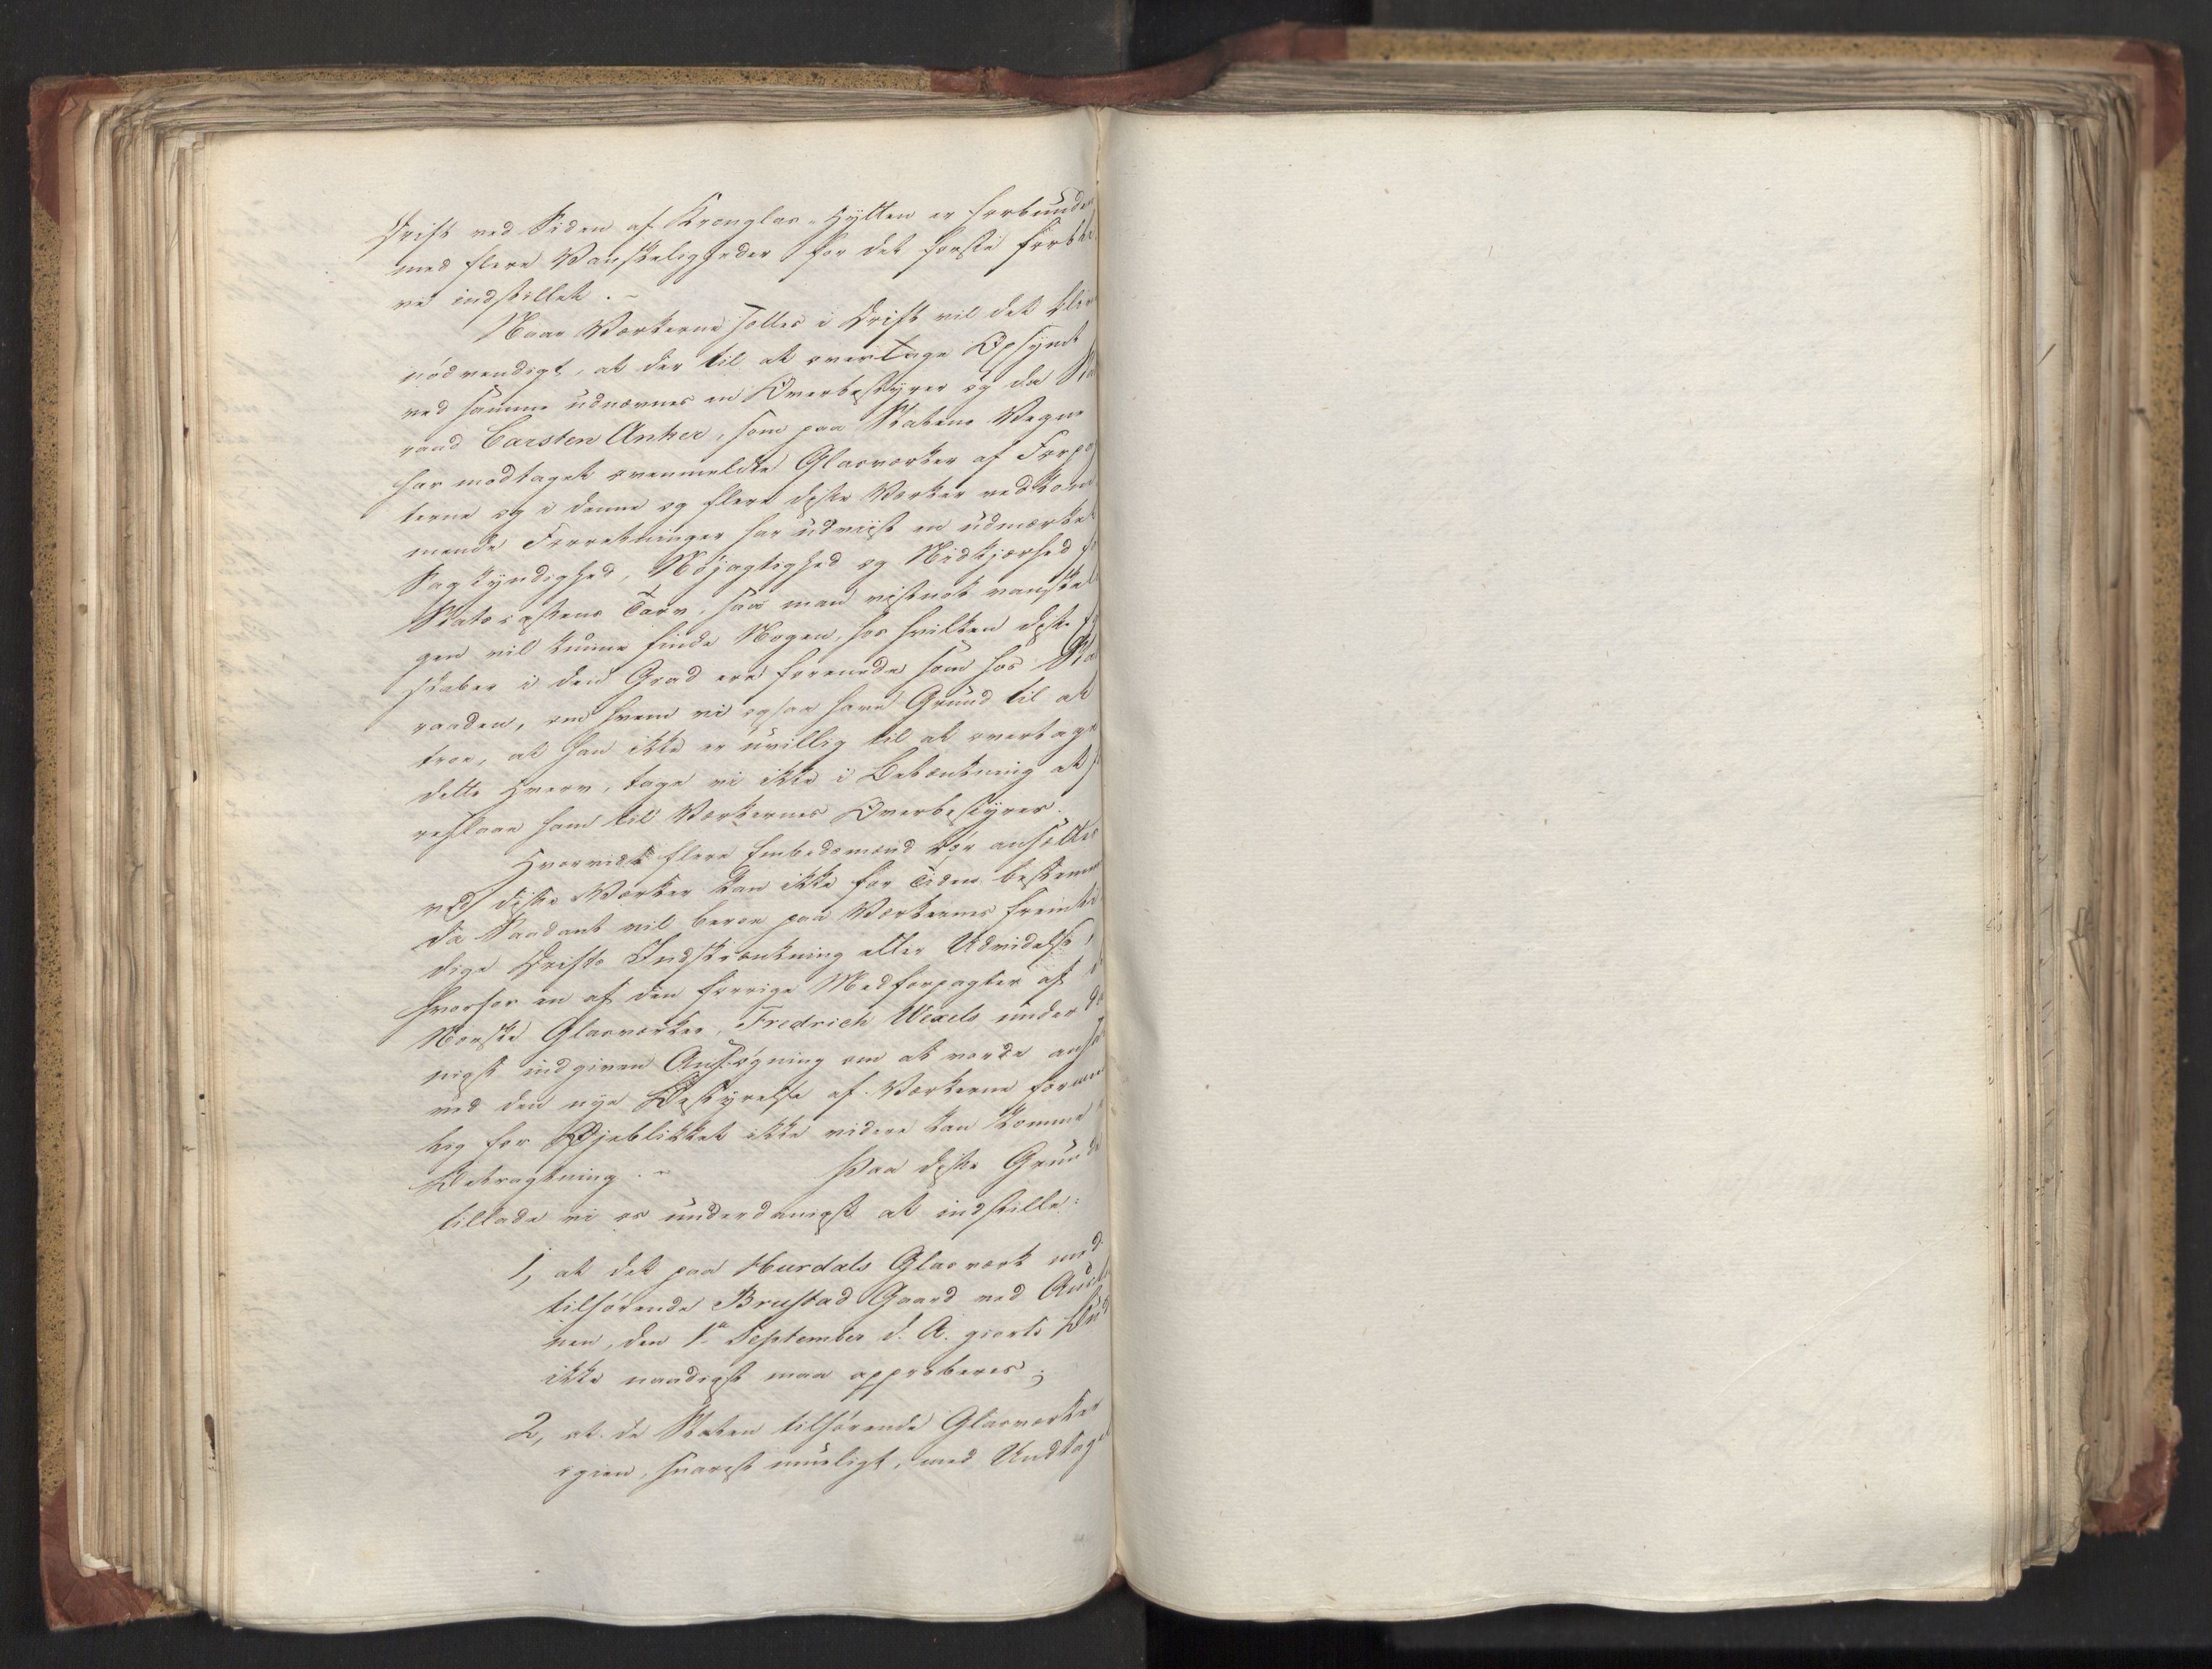 Drift ved Siden af Kronglas-Hytten er forbunden
med flere Vanskeligheder for det første forbli-
ve indstillet. –
Naar Værkerne sættes i Drift vil det blive
nødvendigt, at der til at overtage Opsynet
ved samme udnævnes en Overbestyrer og da
raad Carsten Anker, som paa Statens Vegne
har modtaget ovenmeldte Glasværker af Forpag
terne og i denne og flere disse Værker vedkom-
mende Forretninger har udviist en udmærket
Sagkyndighed, Nøjagtighed og Nidkjærhed for
Statscassens Tarv, saa man vistnok vanskeli
gen vil kunne finde Nogen, hos hvilken disse Egen
skaber i den Grad ere forenede som hos Stats
raaden, om hvem vi ogsaa have Grund til at
troe, at han ikke er uvillig til at overtage
dette Hverv, tage vi ikke i Betænkning at fo
reslaae ham til Værkernes Overbestyrer.
Hvorvidt flere Embedsmænd bør ansættes
ved disse Værker kan ikke for Tiden bestemmes
da Saadant vil beroe paa Værkernes fremti-
dige Drifts Indskrænkning eller Udvidelse,
hvorfor en af den forrige Medforpagter af de
Norske Glasværker, Fredrich Wexels underda
nigst indgiven Ansøgning om at vorde ansat
ved den nye Bestyrelse af Værkerne formeent
lig for Øjeblikket ikke videre kan komme i
Betragtning. – Paa disse Grunde
tillade vi os underdanigst at indstille:
1, at det paa Hurdals Glasværk med
tilhørende Brustad Gaard ved Auctio
nen, den 1ste September d. A. gjorte Bud
ikke naadigst maa approberes;
2, at de Staten tilhørende Glasværker
igien, snarest mueligt, med Undtagel